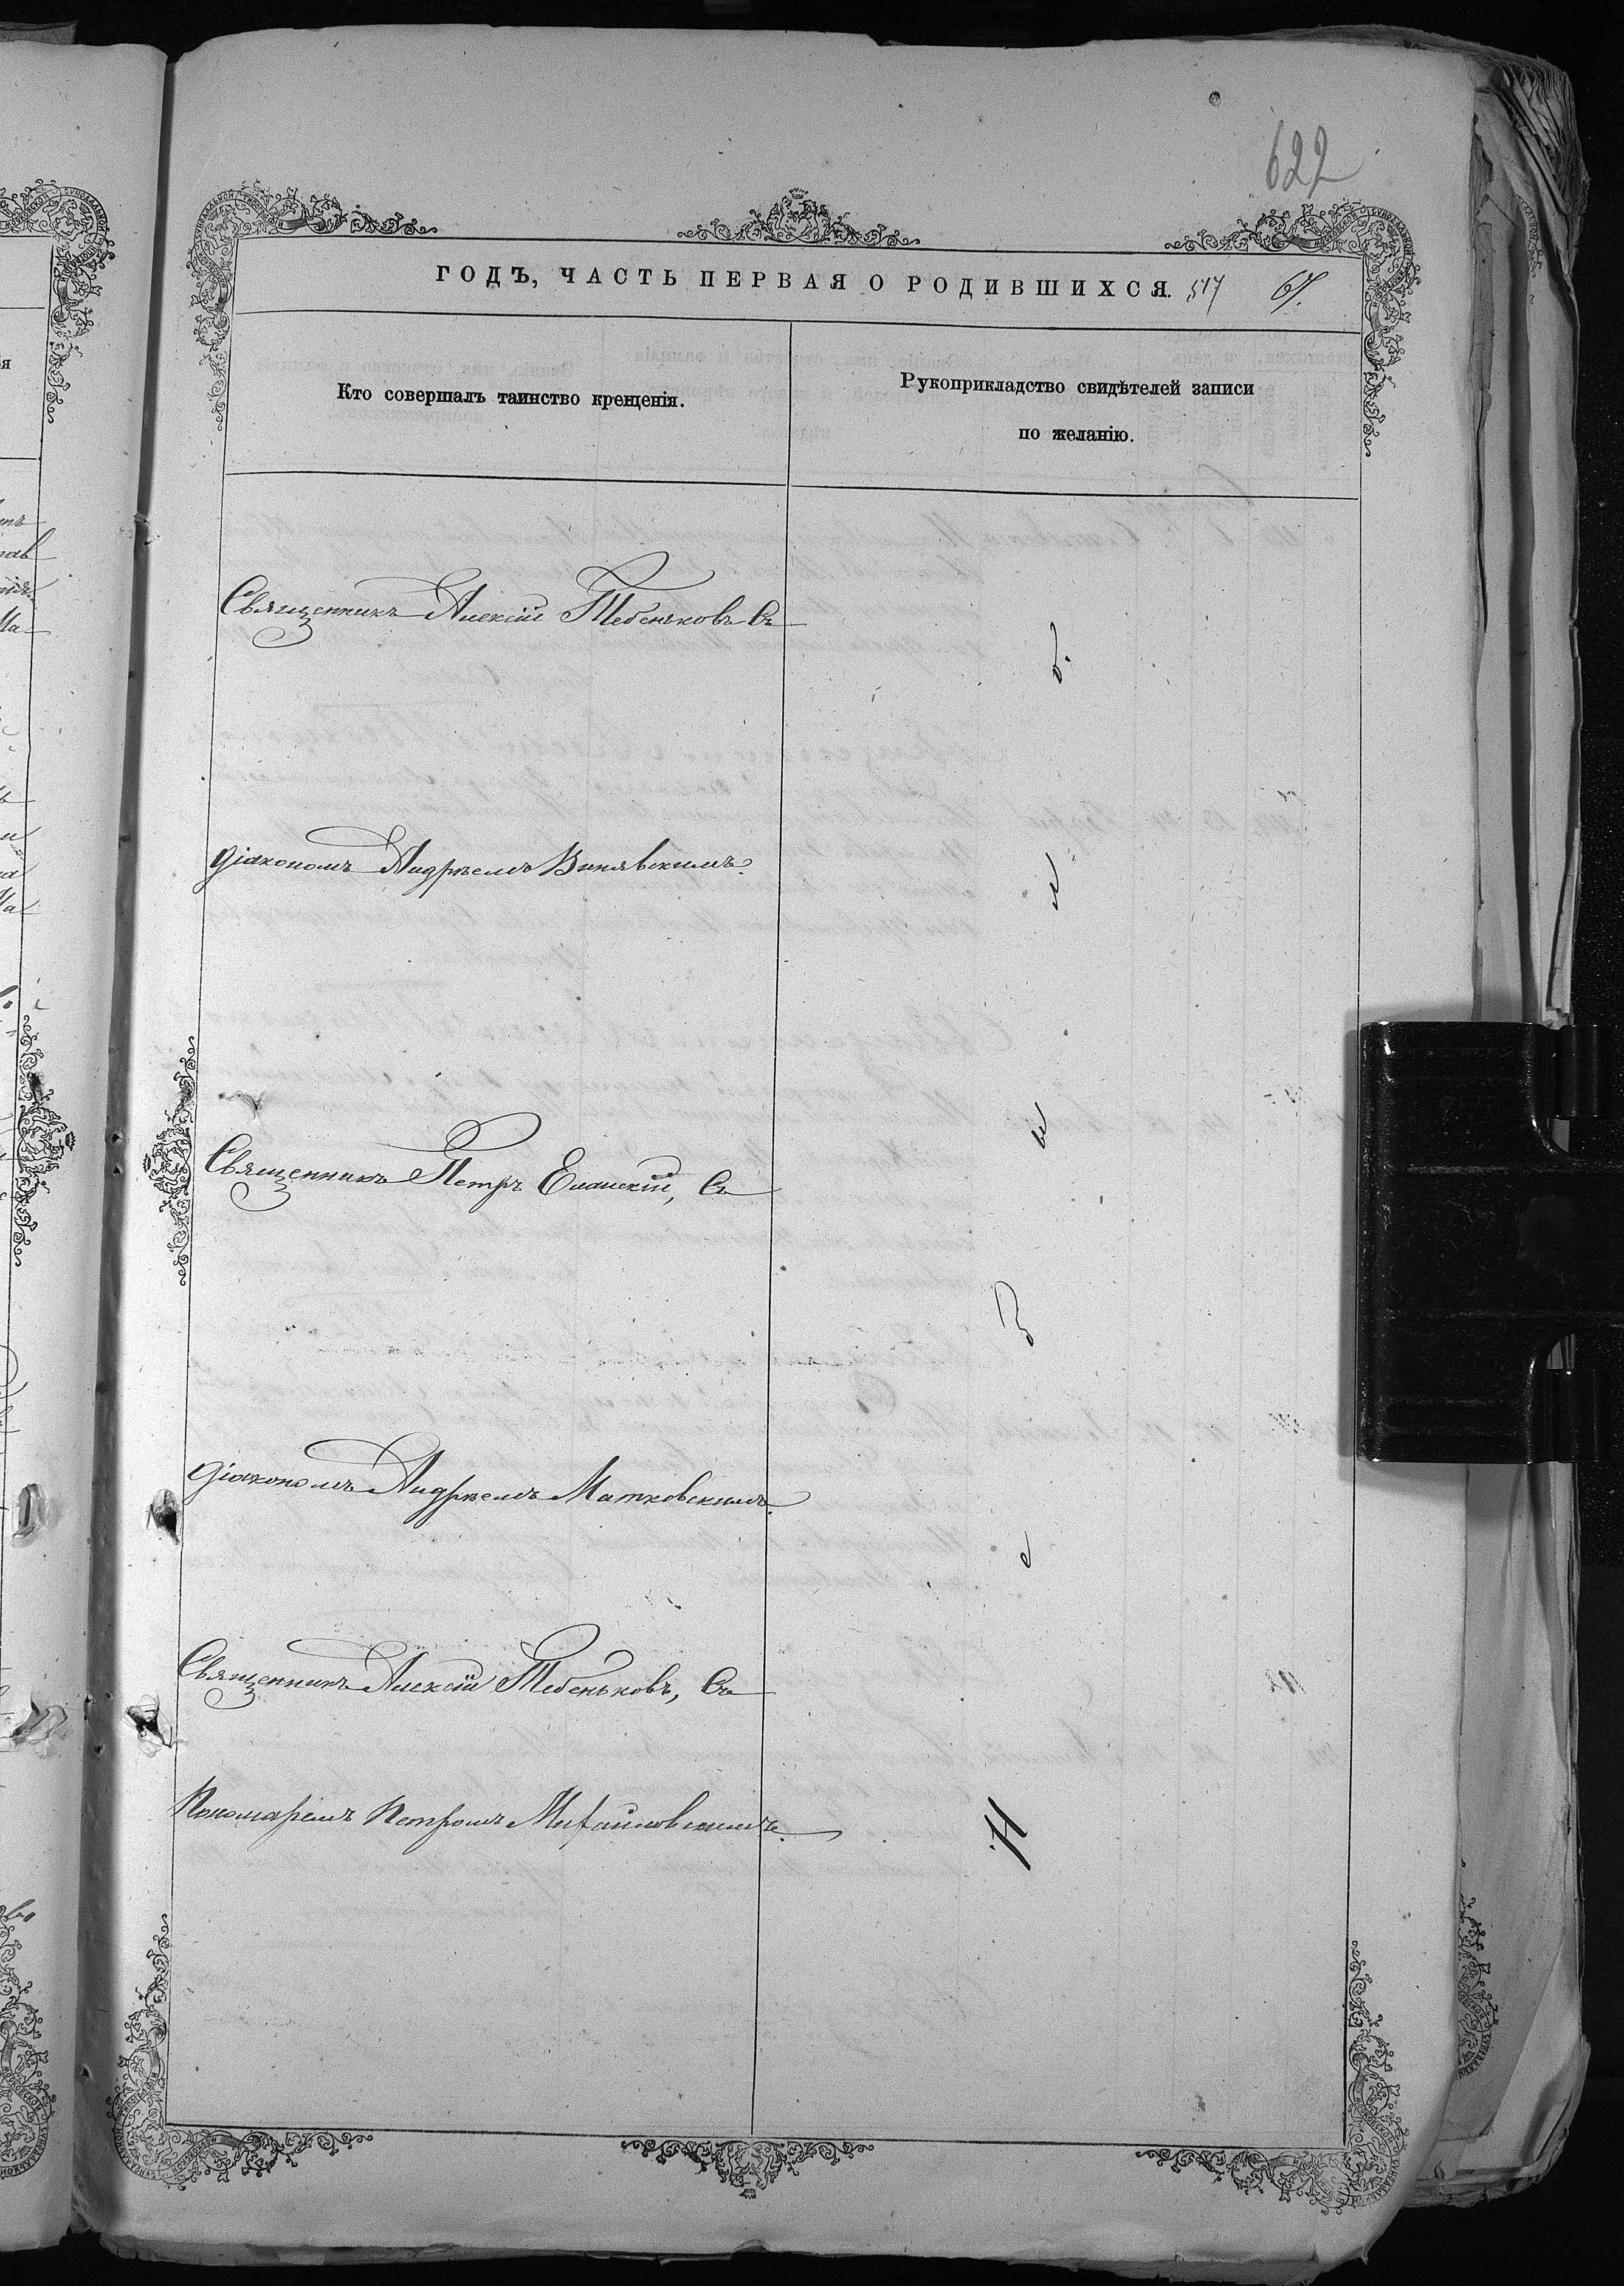 622
ГОДЪ, ЧАСТЬ ПЕРВАЯ О РОДИВШИХСЯ. 517 67.
Кто совершалъ таинство крещенія.
Рукоприкладство свидѣтелей записи
по желанію.
Священникъ Алексій Тебеньковъ Съ
діакономъ Андреемъ Винявскимъ.
Священникъ Петръ Еланскій, Съ
діакономъ Андреемъ Матковскимъ.
Священникъ Алексій Тебеньковъ, Съ
Пономаремъ Петромъ Михайловскимъ.